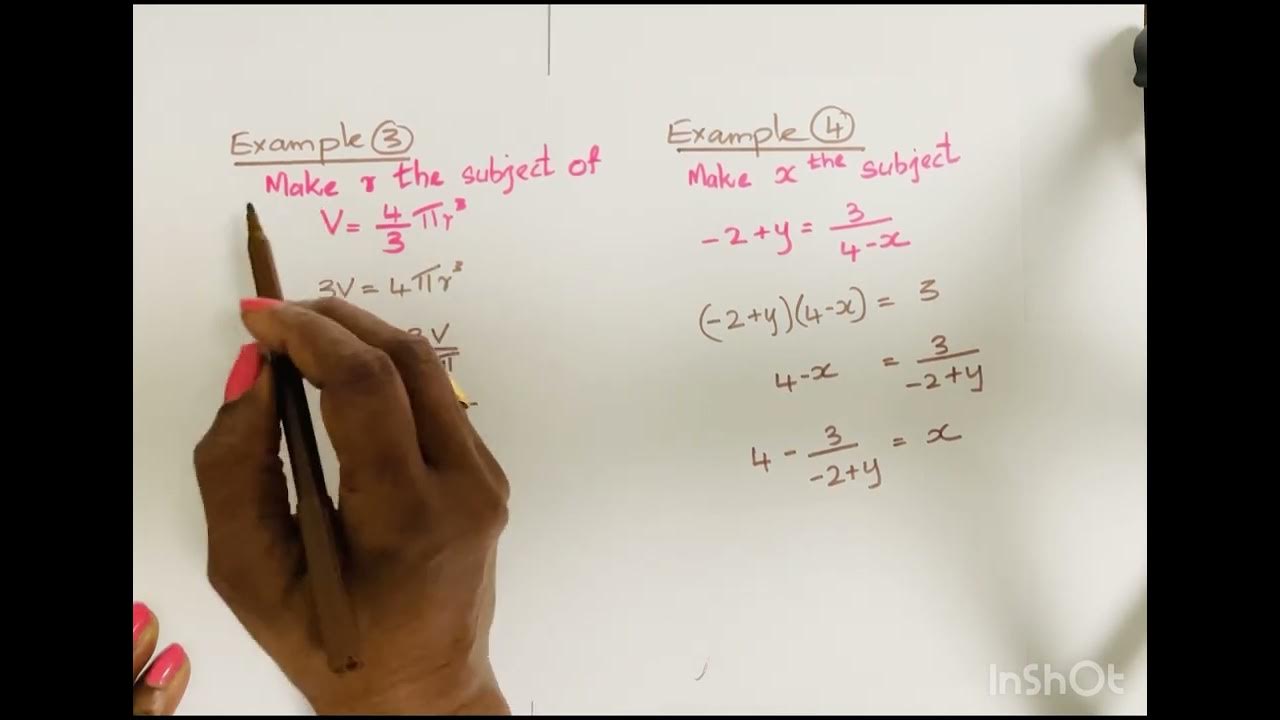 Example ③
Make r the subject of
V = 4/3 πr³
3V = 4πr³
3V
Example ④
Make x the subject
-2+y = 3/(4-x)
(-2+y)(4-x) = 3
4-x = 3/(-2+y)
4 - 3/(-2+y) = x
InShOt